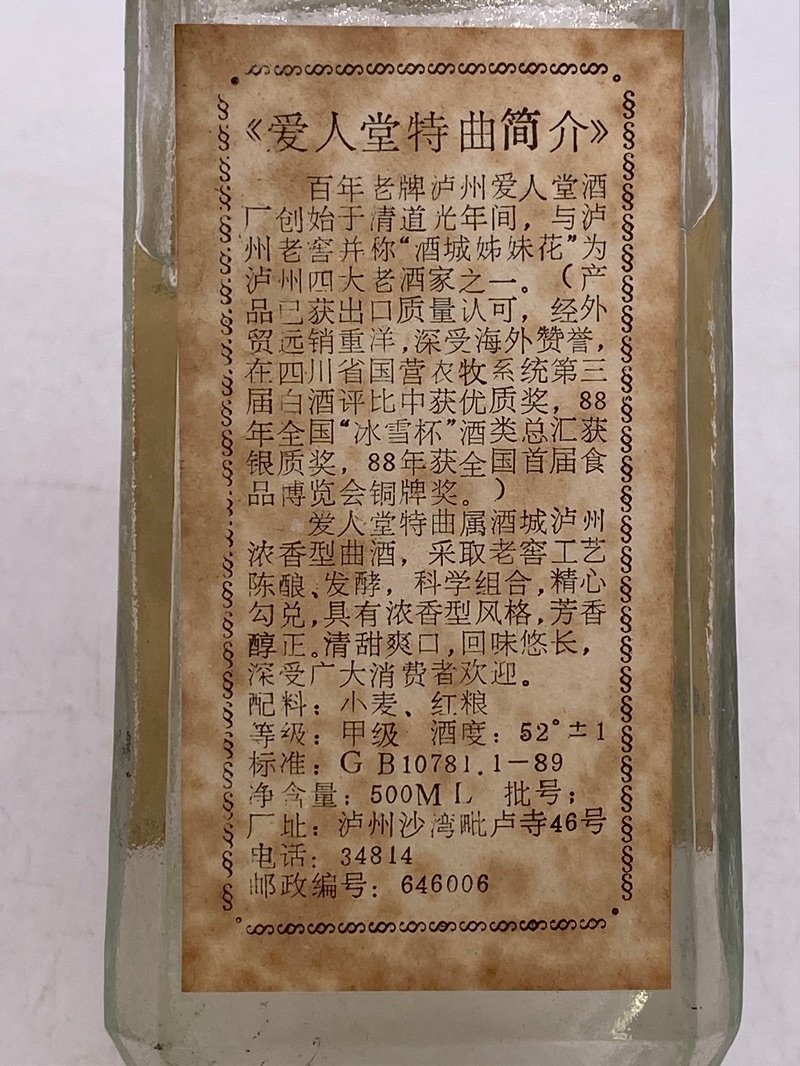 《爱人堂特曲简介》
百年老牌泸州爱人堂酒
厂创始于清道光年间，与泸
州老窖并称“酒城姊妹花”为
泸州四大老酒家之一。（产
品已获出口质量认可，经外
贸远销重洋，深受海外赞誉，
在四川省国营农牧系统第三
届白酒评比中获优质奖，88
年全国“冰雪杯”酒类总汇获
银质奖，88年获全国首届食
品博览会铜牌奖。）
爱人堂特曲属酒城泸州
浓香型曲酒，采取老窖工艺
陈酿、发酵，科学组合，精心
勾兑，具有浓香型风格，芳香
醇正。清甜爽口，回味悠长，
深受广大消费者欢迎。
配料：小麦、红粮
等级：甲级 酒度：52°±1
标准：GB10781.1－89
净含量：500ML 批号；
厂址：泸州沙湾毗卢寺46号
电话：34814
邮政编号：646006